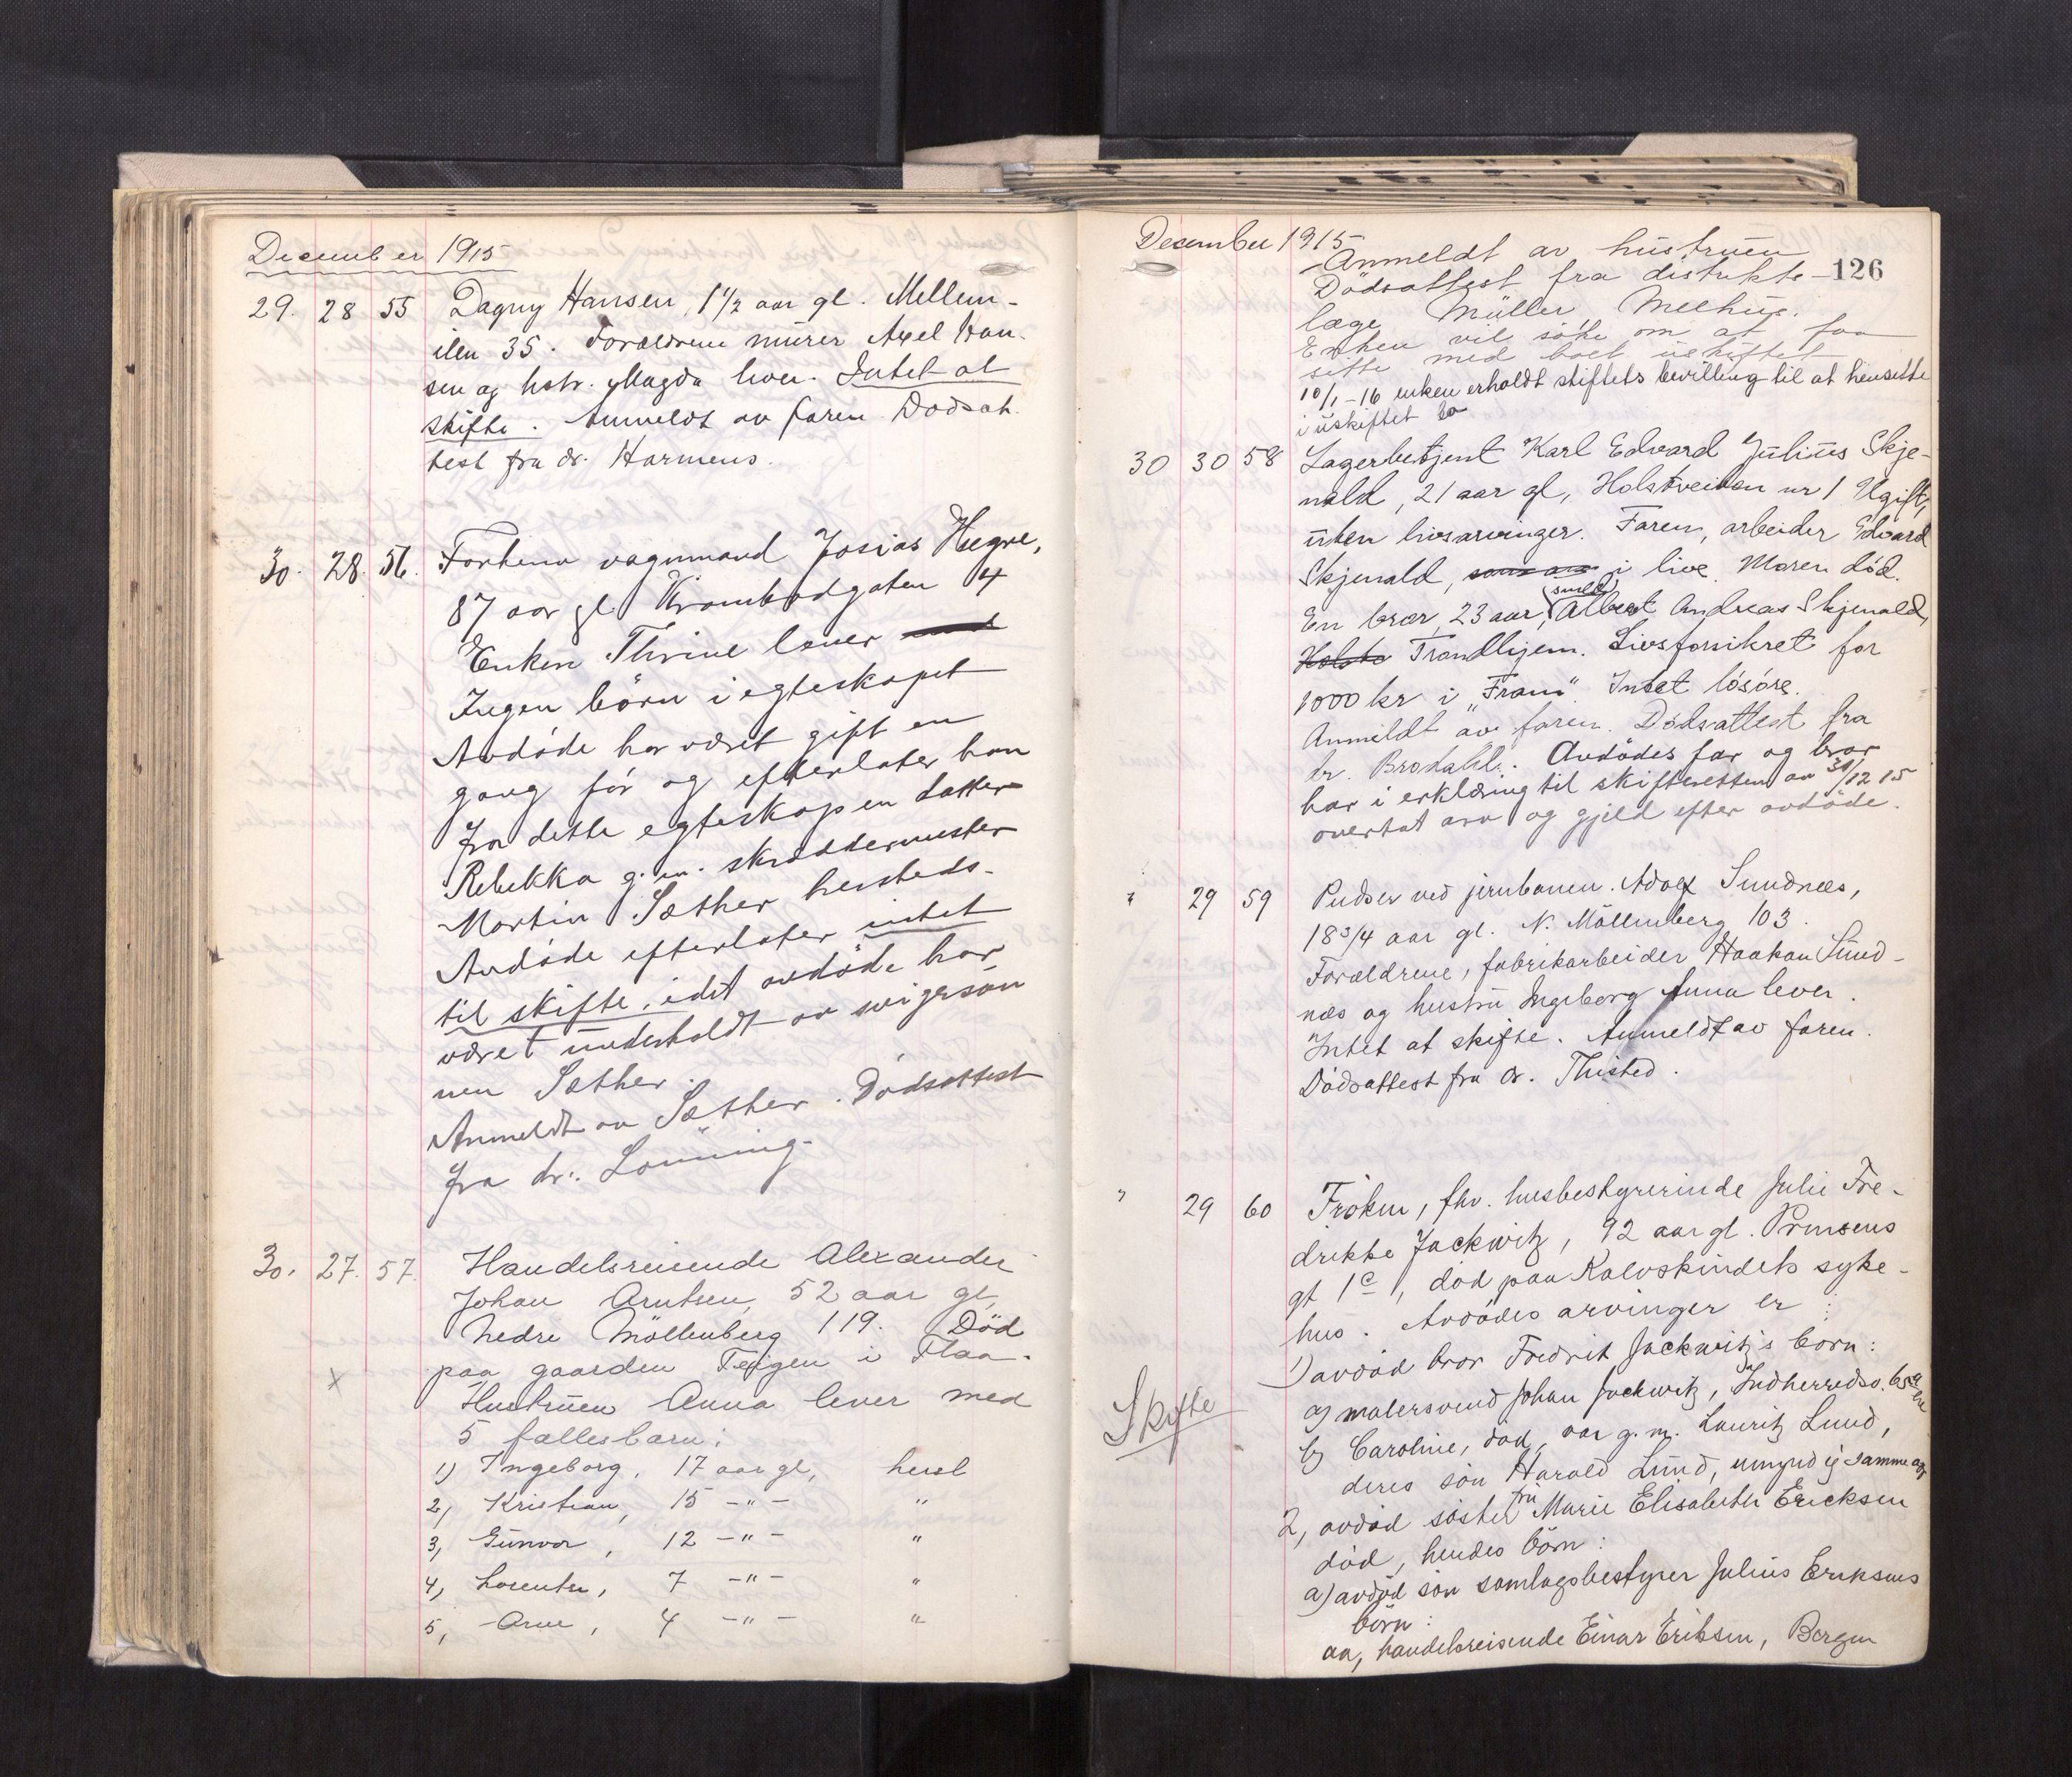 December 1915
29. 28 55 Dagny Hansen, 1 1/2 aar gl. Mellem-
ilen 35. Forældrene murer Axel Han-
sen og hstr. Magda lever. Intet at
skifte. Anmeldt av faren. Dødsat-
test fra dr. Harmens.
30. 28. 56. Forhenv vognmand Josias Hegre,
87 aar gl Krambodgaten 4
Enken Thrine lever
Ingen børn i egteskapet
Avdøde har været gift en
gang før og efterlater han
fra dette egteskap en datter
Rebekka g. m. skræddermester
Martin Sæther hersteds-
Avdøde efterlater intet
til skifte, idet avdøde har
været underholdt av svigersøn
nen Sæther.
Anmeldt av Sæther. Dødsattest
fra dr. Lønning.
30. 27. 57. Handelsreisende Alexander
Johan Arntsen, 52 aar gl,
Nedre Möllenberg 119. Död
paa gaarden Teigen i Flaa.
x
Hustruen Anna lever med
5 fællesbarn:
1) Ingeborg, 17 aar gl, herst
2, Kristian, 15 -"- "
3, Gunvor, 12 -"- "
4, Lorentse, 7 -"- "
5, Arne, 4 -"- "
December 1915
126
Anmeldt av hustruen
Dödsattest fra distrikts-
læge Müller, Melhus.
Enken vil söke om at faa
sitte med boet uskiftet
10/1-16 enken erholdt skiftets bevilling til at hensitte
i uskiftet bo
30 30 58 Lagerbetjent Karl Edvard Julius Skje-
nald, 21 aar gl, Holstveiten nr 1 Ugift,
uten livsarvinger. Faren, arbeider Edvard
Skjenald, i live. Moren död.
En bror, 23 aar, (smed) Albert Andreas Skjenald,
Trondhjem. Livsforsikret for
1000 kr i "Fram". Intet lösöre.
Anmeldt av faren. Dödsattest fra
dr. Brodahl. Avdödes far og bror
har i erklæring til skifteretten av 31/12 15
overtat arv og gjeld efter avdöde.
" 29 59 Pudser ved jernbanen. Adolf Sundnes,
18 3/4 aar gl. N. Möllenberg 103.
Forældrene, fabrikarbeider Haakon Sund-
nes og hustru Ingeborg Anna lever.
Intet at skifte. Anmeldt av faren.
Dödsattest fra dr. Thisted.
" 29 60 Fröken, fhv. husbestyrerinde Julie Fre-
drikke Jackwitz, 92 aar gl. Prinsens
gt 1c, död paa Kalvskindets syke-
hus. Avdödes arvinger er:
Skifte
1) avdöd bror Fredrik Jackwitz's börn:
a) malersvend Johan Jackwitz, Indherredsv.
b) Caroline, död, var g. m. Lauritz Lund,
deres sön Harald Lund, umyndig samme
2, avdöd söster fru Marie Elisabeth Ericksen
död, hendes börn:
a) avdöd sön samlagsbestyrer Julius Eriksens
börn:
aa, handelsreisende Einar Eriksen, Bergen